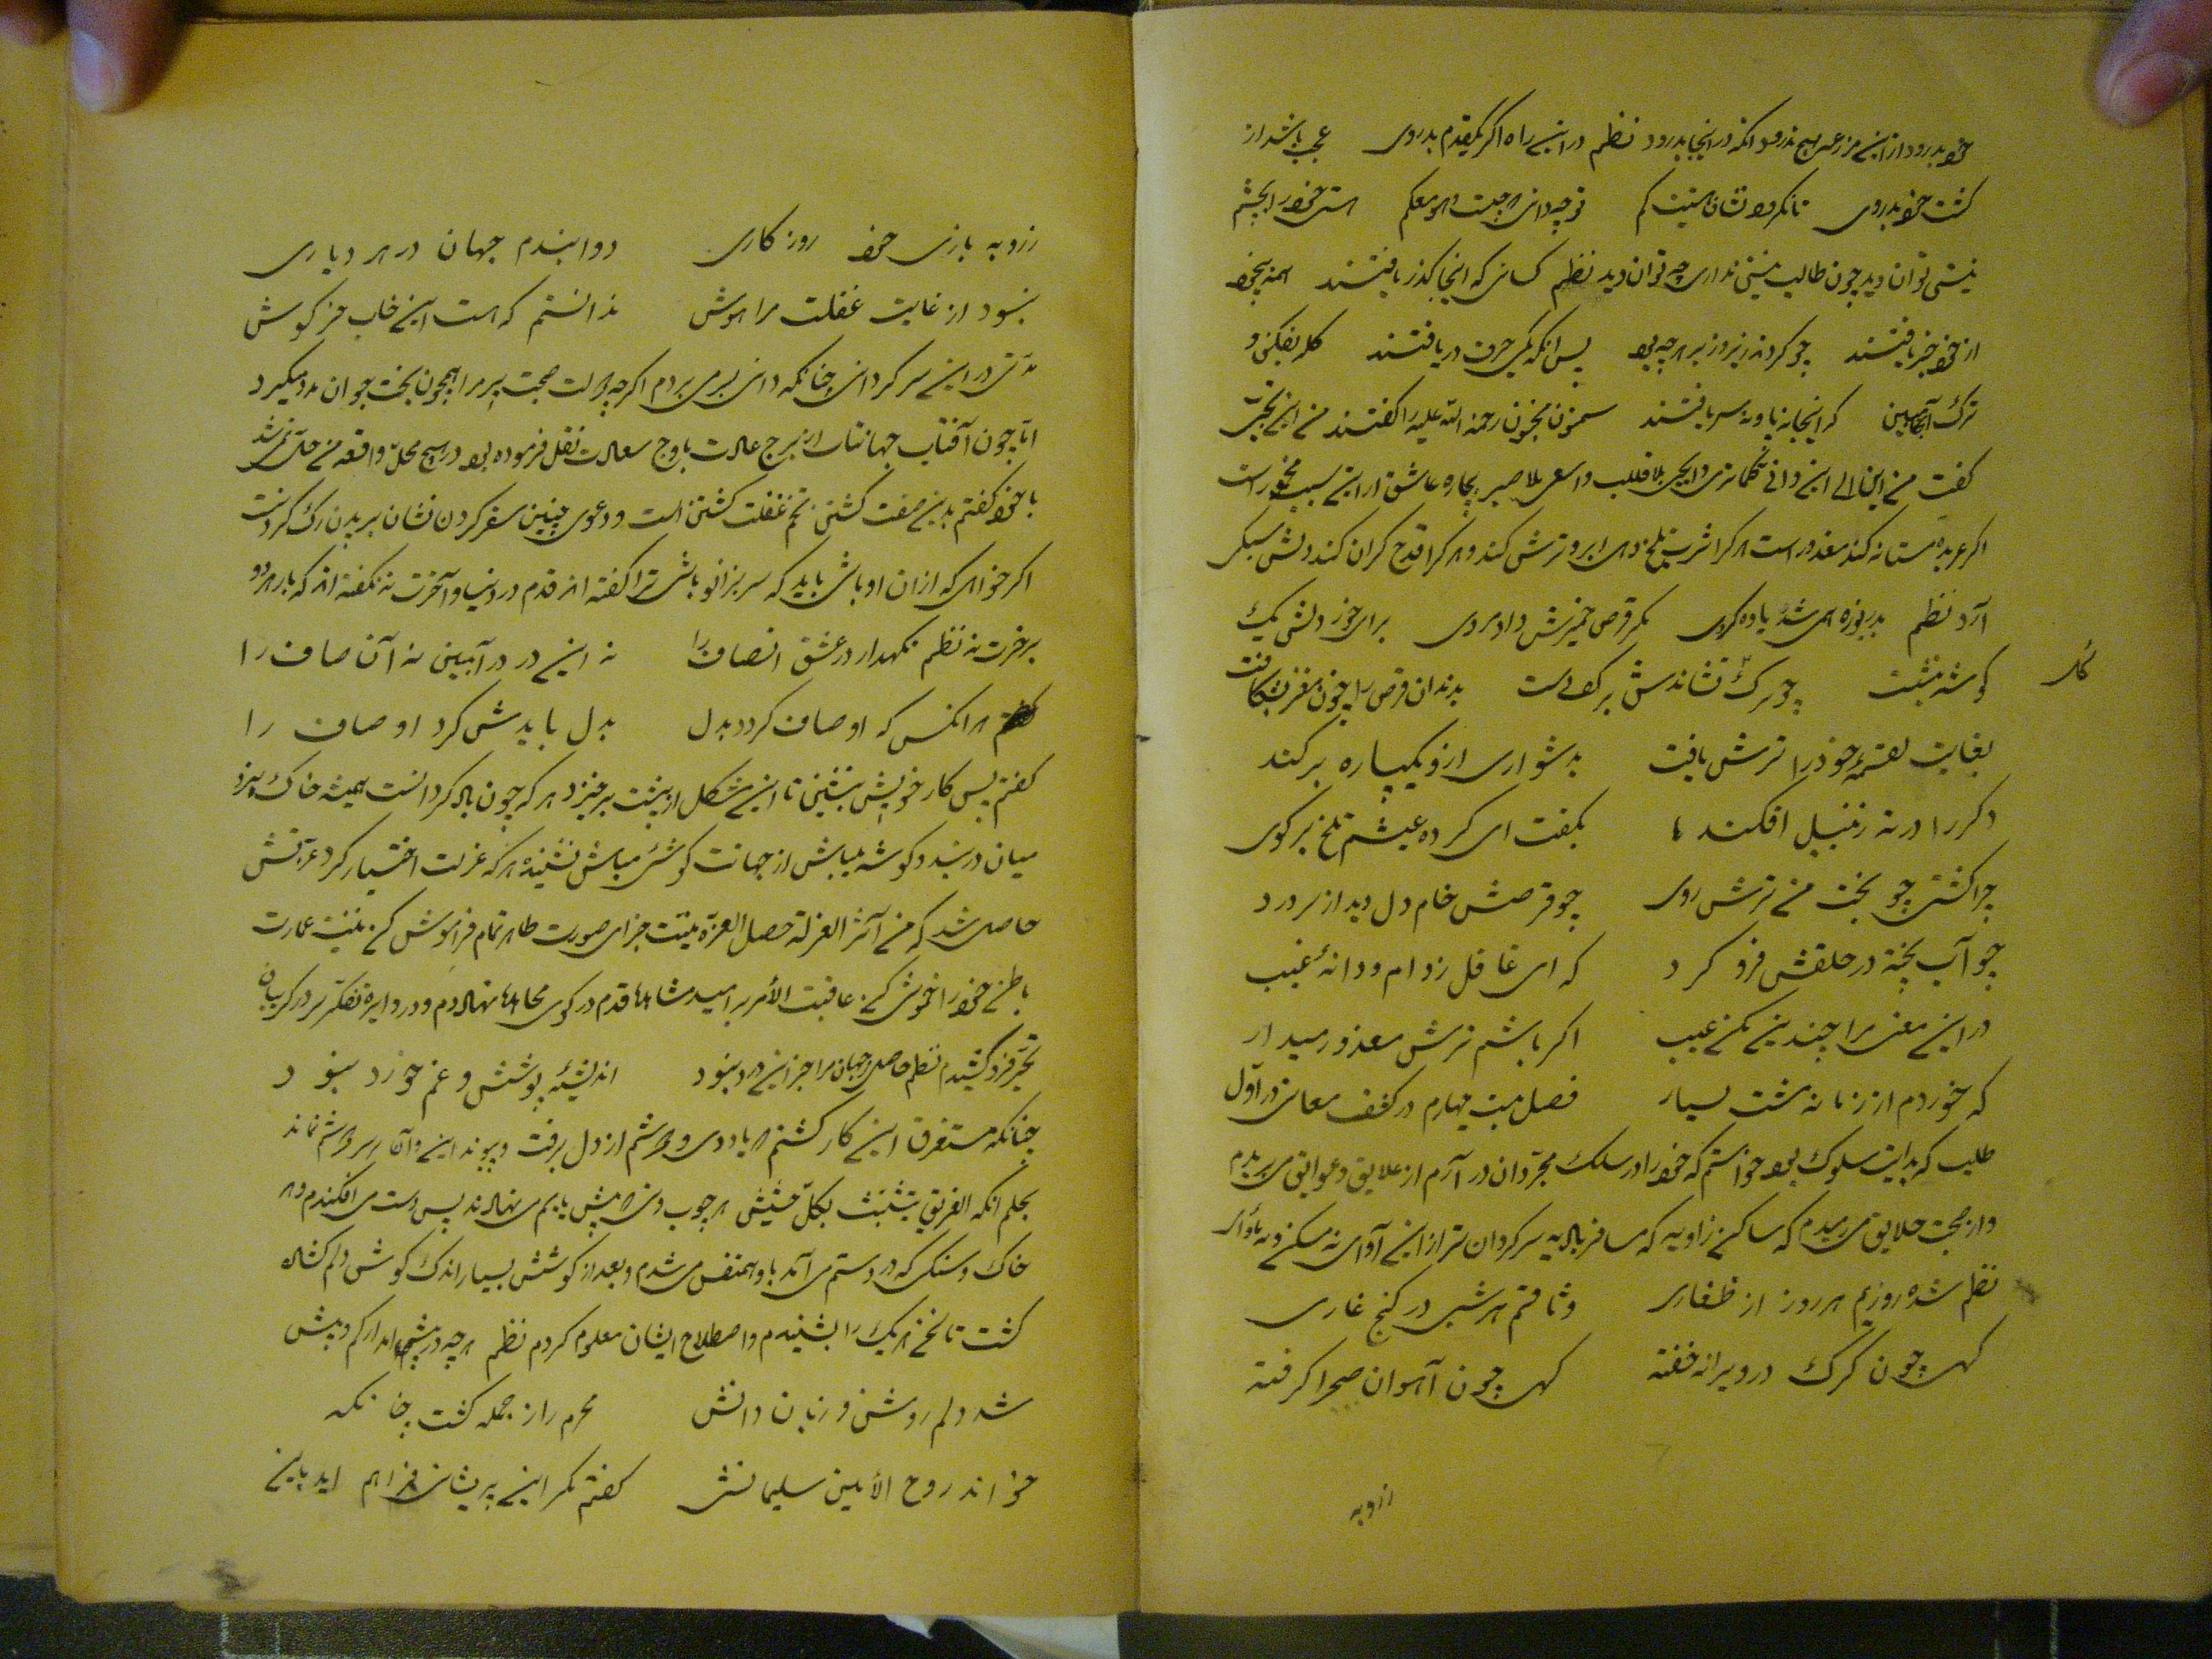 خود بدرود ازین مزرعه هیچ ندرود انکه در اینجا بدرود نظم در این راه اکر یکقدم بدروی عجب باشد ار
کشت خود بدروی تا نکردد نشان هستیت کم تو چه دانی هو معکم هستی خود را بچشم
نیستی توان دید چون طالب نیستی نداری چه توان دید نظم کسانی که اینجا کذر یافتند همه بیخود
از خود خبر یافتند چو کردند زیر و زبر هر چه بود پس انکه یکی حرف دریافتند کله بفکن و
ترک کر اینجا نه پا و نه سر یافتند سمنون مجنون رحمة الله علیه را کفتند من این تجئ
کفت من این الی این وانی بلا قلب واسعی بلا صبر بیچاره عاشق از این سبب مخمور است
اکر عربده مستانه کند معذور است هر کرا شربت تلخ دهی ابرو ترش کند و هر کرا قدح کران کند دلش سبکی
آرد نظم بدریوزه همی شد یاوه کردی مکر قرص خمیرش داد مردی برای خوردنش یک
کوشه بنشست چو سک نشاندش بر کف دست بدندان قرص را چون مغز بشکافت
کل
بغایت لقمهٔ خود را ترش یافت بدشواری ازو یکپاره برکند
دکر را در ته زنبیل افکند بکفت ای کرده عیشم تلخ برکوی
چرا کشتی چو بخت من ترش روی چو قرصش خام دل دید از سر درد
چو آب پخته در حلقش فرو کرد که ای غافل ز دام و دانهٔ غیب
در این معنی مرا چندین مکن عیب اکر باشم ترش معذور میدار
که خوردم از زمانه مشت بسیار فصل بیست چهارم در کشف معانی در اول
طلب که بدایت سلوک بود خواستم که خود را در سلک مجردان در آرم از علایق و عوایق می بریدم
و از صحبت خلایق می رمیدم که ساکن زاویه که مسافر بادیه سرکردان تر از این آوای نه مسکنی و نه ماوای
نظم شده روزیم هر روز از ظفاری وثاقم هر شبی در کنج غاری
کهی چون کرک در ویرانه خفته کهی چون آهوان صحرا کرفته
زدو به
زدو به بازی خود روزکاری دوانیدم جهان در هر دیاری
نبود از غایت غفلت مرا هوش ندانستم که هست این خاب خرکوش
مدتی در این سرکردانی چنانکه دانی بسر می بردم اکر چه دولت صحبت پیر مرا همچون بخت جوان مدد میکرد
اما چون آفتاب جهانتاب از برج عدالت باوج سعادت نقل فرموده بود در هیچ محل واقعه من حل نمیشد
با خود کفتم بدین صفت کشتن تخم غفلت کشتن است و دعوی چنین سفر کردن نشان بریدن رک کردنست
اکر خواهی که از ان او باشی باید که سر بزانو باشی ترا کفته اند قدم در دنیا و آخرت نه نکفته اند که بار هر دو
بر خرت نه نظم نکهدار در عشق انصاف را نه این درد در آمیز نه آن صاف را
هر انکس که او صاف کردد بدل بدل بایدش کرد اوصاف را
کفتم پس کار خویش بنشین تا این مشکل از پیشت برخیزد هر که چون باد کرد است همیشه خاک بیزد
میان در بند و کوشه میباش از جهانت کوشهٔ میباش نشنیدهٔ هر که عزلت اختیار کرد عزتش
حاصل شد که من آثر العزلة حصل العزة بنیت جزای صورت ظاهر تمام فراموش کن بنیت عمارت
باطن خود را خوش کن عاقبت الأمر بر امید مشاهده قدم در کوی مجاهده نهادم و در دایره تفکر سر در کریبان
تحیر فرو کشیدم نظم حاصل ز جهان مرا جز این درد نبود اندیشهٔ پوشش و غم خورد نبود
چنانکه مستغرق این کار کشتم از دل برفت و پیوند این و آن در سرشتم نماند
بحکم انکه الغریق یتشبث بکل حشیش هر چوب و نی که پیش پایم می نهادند پس دست می افکندم و هر
خاک و سنکی که در دستم می آمد با او همنفس می شدم و بعد از کوشش بسیار اندک کوش دلم کشاده
کشت تا سخن هر یک را بشنیدم و اصطلاح ایشان معلوم کردم نظم هر چه در پیشم امد از کم و بیش
شد دلم روشن و زبان دانش محرم راز جمله کشت چنانکه
خواند روح الأمین سلیمانش کفتم مکر این پریشانی فراهم اید باین